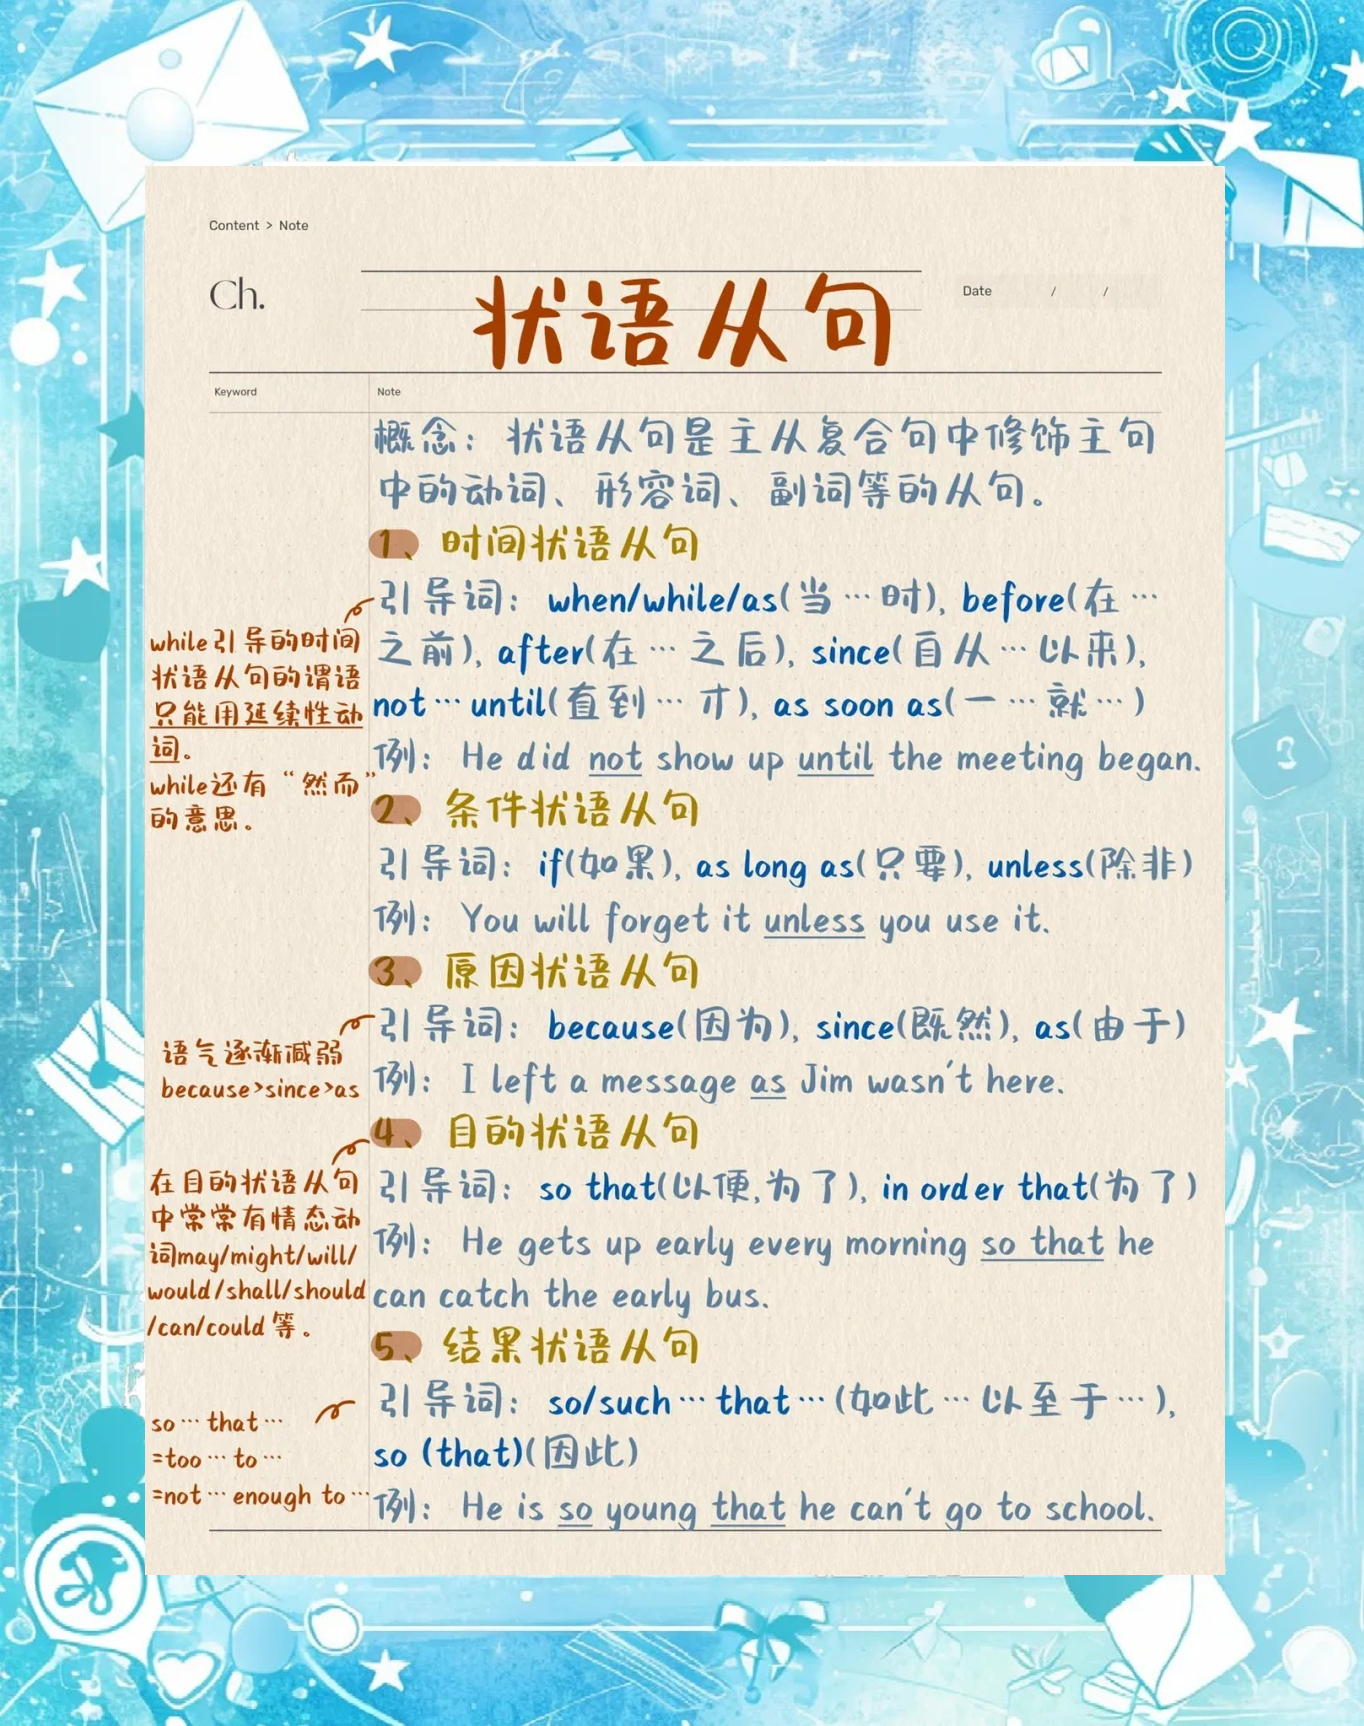 Content > Note
Ch.
状语从句
Date / /
Keyword
Note
概念：状语从句是主从复合句中修饰主句
中的动词、形容词、副词等的从句。
1、时间状语从句
引导词：when/while/as(当…时), before(在…
之前), after(在…之后), since(自从…以来),
not…until(直到…才), as soon as(一…就…)
例：He did not show up until the meeting began.
while引导的时间
状语从句的谓语
只能用延续性动
词。
while还有“然而”
的意思。
2、条件状语从句
引导词：if(如果), as long as(只要), unless(除非)
例：You will forget it unless you use it.
3、原因状语从句
引导词：because(因为), since(既然), as(由于)
例：I left a message as Jim wasn't here.
语气逐渐减弱
because>since>as
4、目的状语从句
引导词：so that(以便,为了), in order that(为了)
例：He gets up early every morning so that he
can catch the early bus.
在目的状语从句
中常常有情态动
词may/might/will/
would/shall/should
/can/could等。
5、结果状语从句
引导词：so/such…that…(如此…以至于…),
so (that)(因此)
例：He is so young that he can't go to school.
so…that…
=too…to…
=not…enough to…